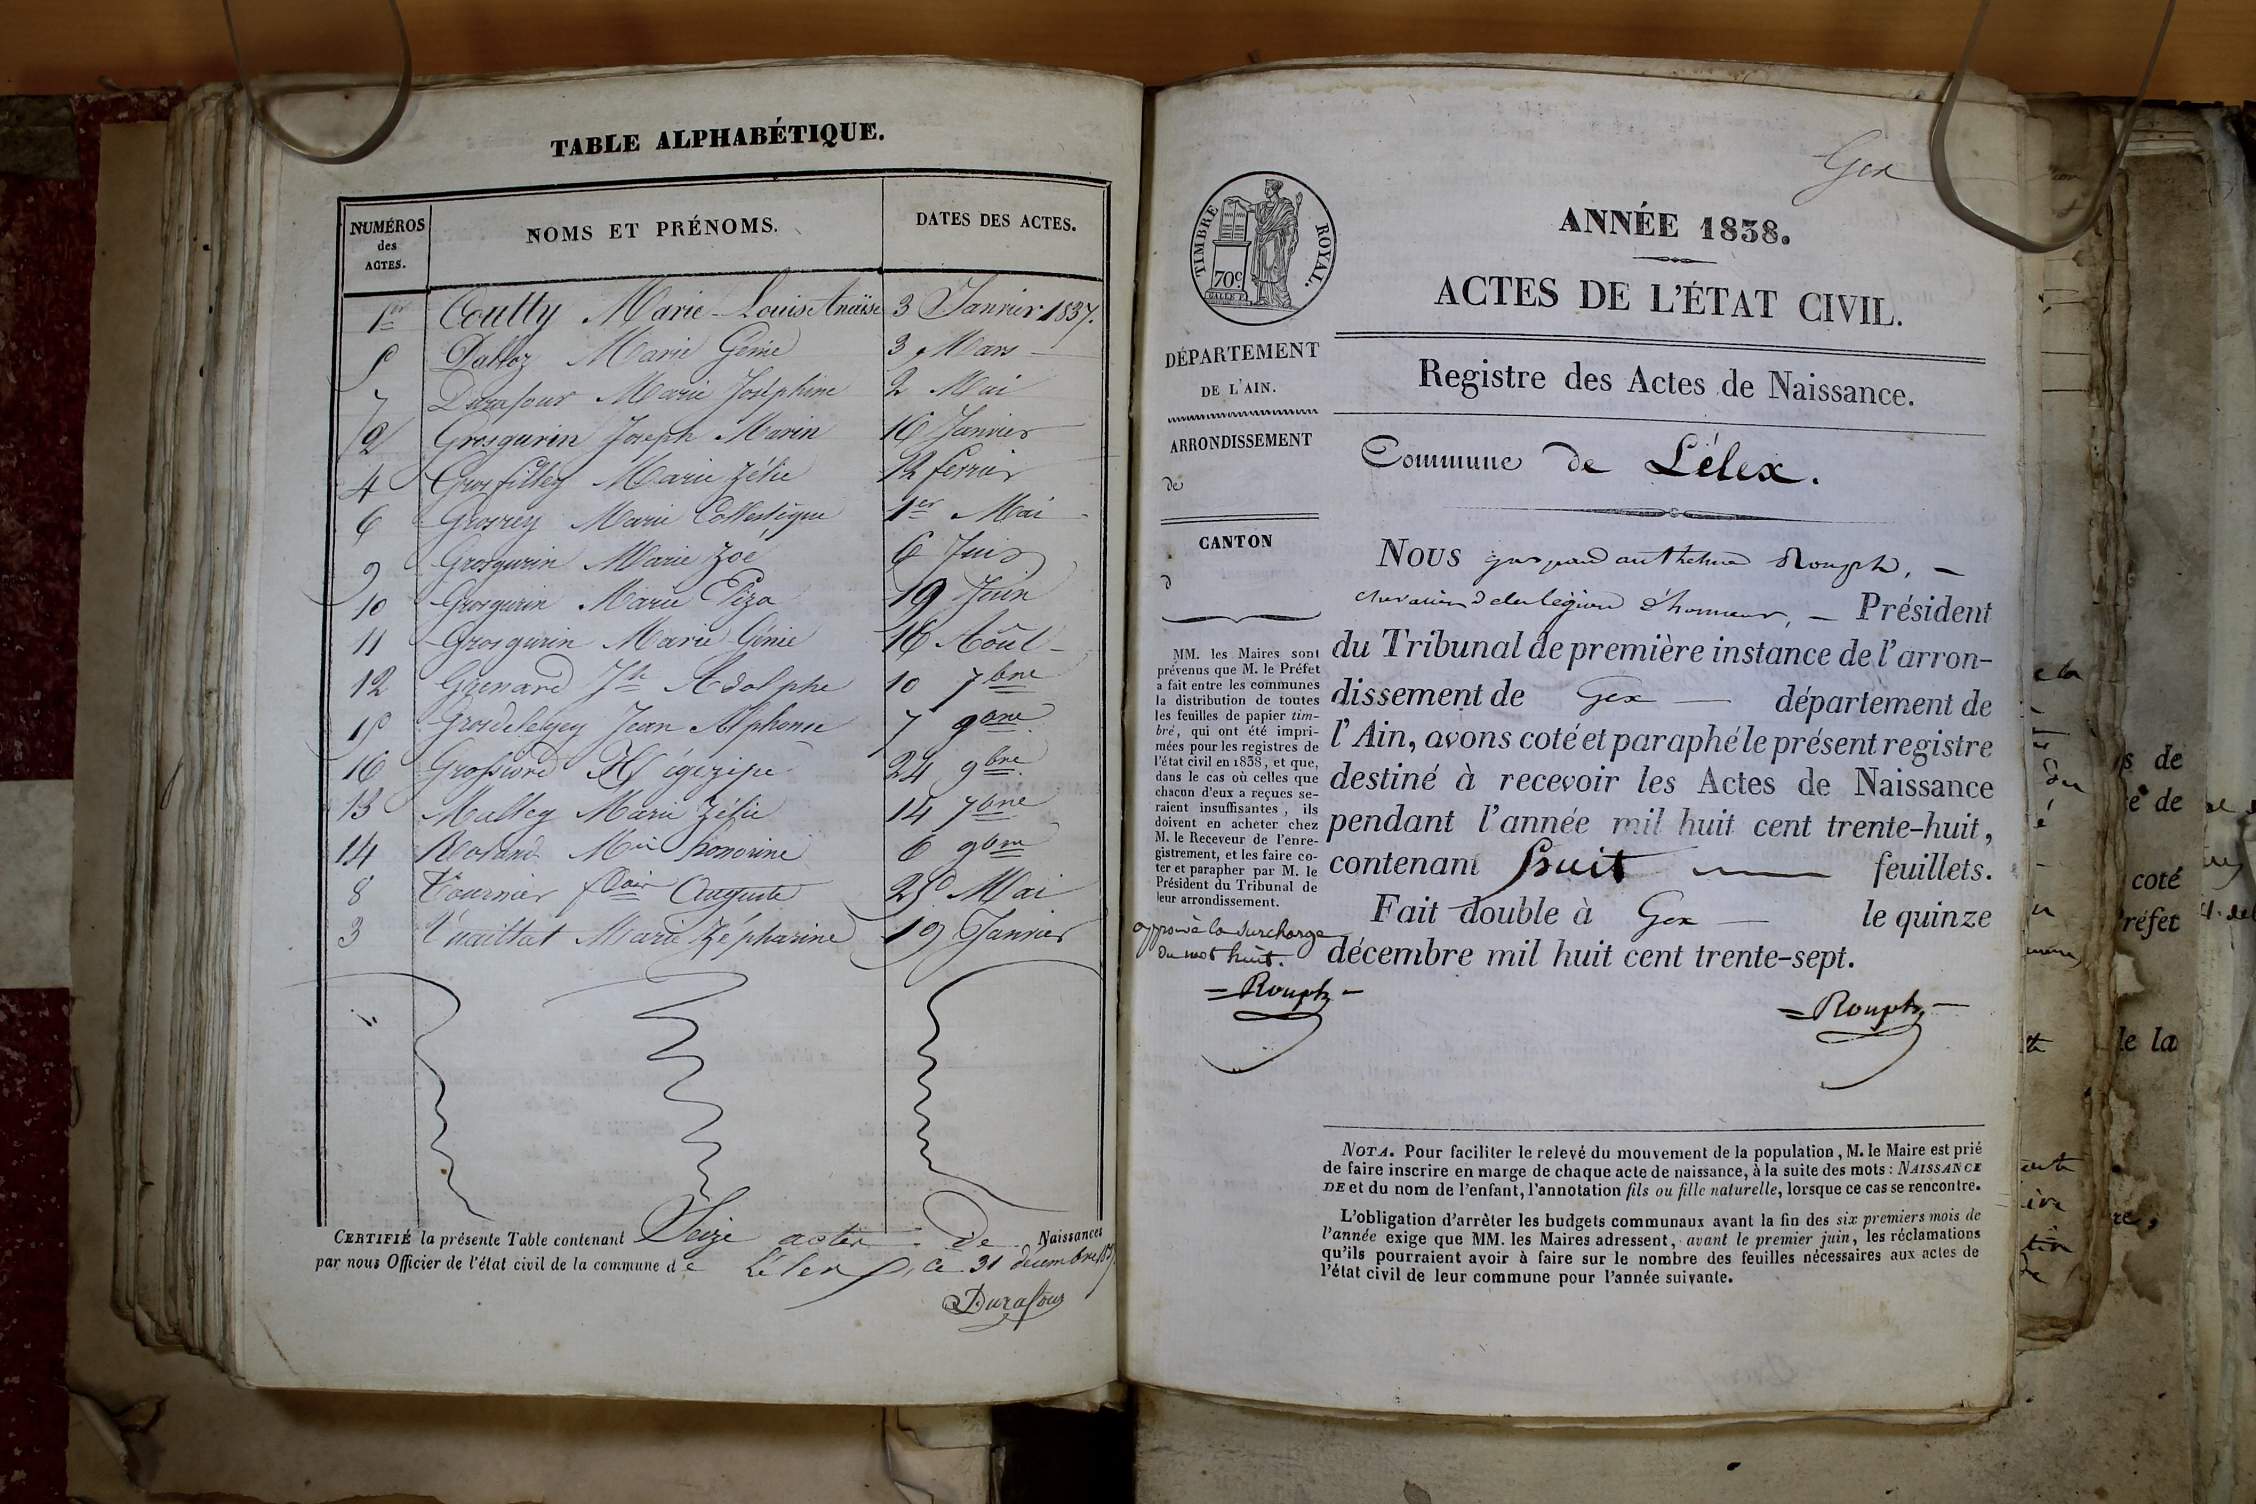 TABLE ALPHABÉTIQUE.
NUMÉROS des ACTES. NOMS ET PRÉNOMS. DATES DES ACTES.
1er Coutty Marie-Louise Anaïse 3 Janvier 1837.
5 Dalloz Marie Génie 3 Mars
7 Durafour Marie Joséphine 2 Mai
2 Grosgurin Joseph Marin 16 Janvier
4 Grosfilley Marie Zélie 12 fevrier
6 Grosrey Marie 1er Mai
9 Grosgurin Marie Zoé 6 Juin
10 Grosgurin Marie Eliza 19 Juin
11 Grosgurin Marie Génie 16 Août
12 Grenard Jh Adolphe 10 7bre
15 Jean Alphonse 7 9bre
16 24 9bre
13 Malley Marie Zélie 14 7bre
14 Mie honorine 6 9bre
8 Tournier Auguste 25 Mai
3 Marie Zépharine 19 Janvier
CERTIFIÉ la présente Table contenant Seize actes de Naissances
par nous Officier de l'état civil de la commune de Lélex, ce 31 décembre 1837.
Durafour
Gex
TIMBRE ROYAL.
70c
ANNÉE 1838.
ACTES DE L'ÉTAT CIVIL.
DÉPARTEMENT
DE L'AIN.
ARRONDISSEMENT
de
CANTON
d
MM. les Maires sont
prévenus que M. le Préfet
a fait entre les communes
la distribution de toutes
les feuilles de papier tim-
bré, qui ont été impri-
mées pour les registres de
l'état civil en 1838, et que,
dans le cas où celles que
chacun d'eux a reçues se-
raient insuffisantes, ils
doivent en acheter chez
M. le Receveur de l'enre-
gistrement, et les faire co-
ter et parapher par M. le
Président du Tribunal de
leur arrondissement.
approuvé la surcharge
du mot huit.
Rouph
Registre des Actes de Naissance.
Commune de Lélex.
NOUS gaspard anthelme Rouph,
chevalier de la légion d'honneur, Président
du Tribunal de première instance de l'arron-
dissement de Gex département de
l'Ain, avons coté et paraphé le présent registre
destiné à recevoir les Actes de Naissance
pendant l'année mil huit cent trente-huit,
contenant huit feuillets.
Fait double à Gex le quinze
décembre mil huit cent trente-sept.
Rouph
NOTA. Pour faciliter le relevé du mouvement de la population, M. le Maire est prié
de faire inscrire en marge de chaque acte de naissance, à la suite des mots: NAISSANCE
DE et du nom de l'enfant, l'annotation fils ou fille naturelle, lorsque ce cas se rencontre.
L'obligation d'arrêter les budgets communaux avant la fin des six premiers mois de
l'année exige que MM. les Maires adressent, avant le premier juin, les réclamations
qu'ils pourraient avoir à faire sur le nombre des feuilles nécessaires aux actes de
l'état civil de leur commune pour l'année suivante.
de
de
coté
réfet
de la